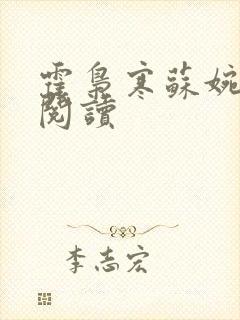 霍梟寒蘇婉
閱讀
李志宏